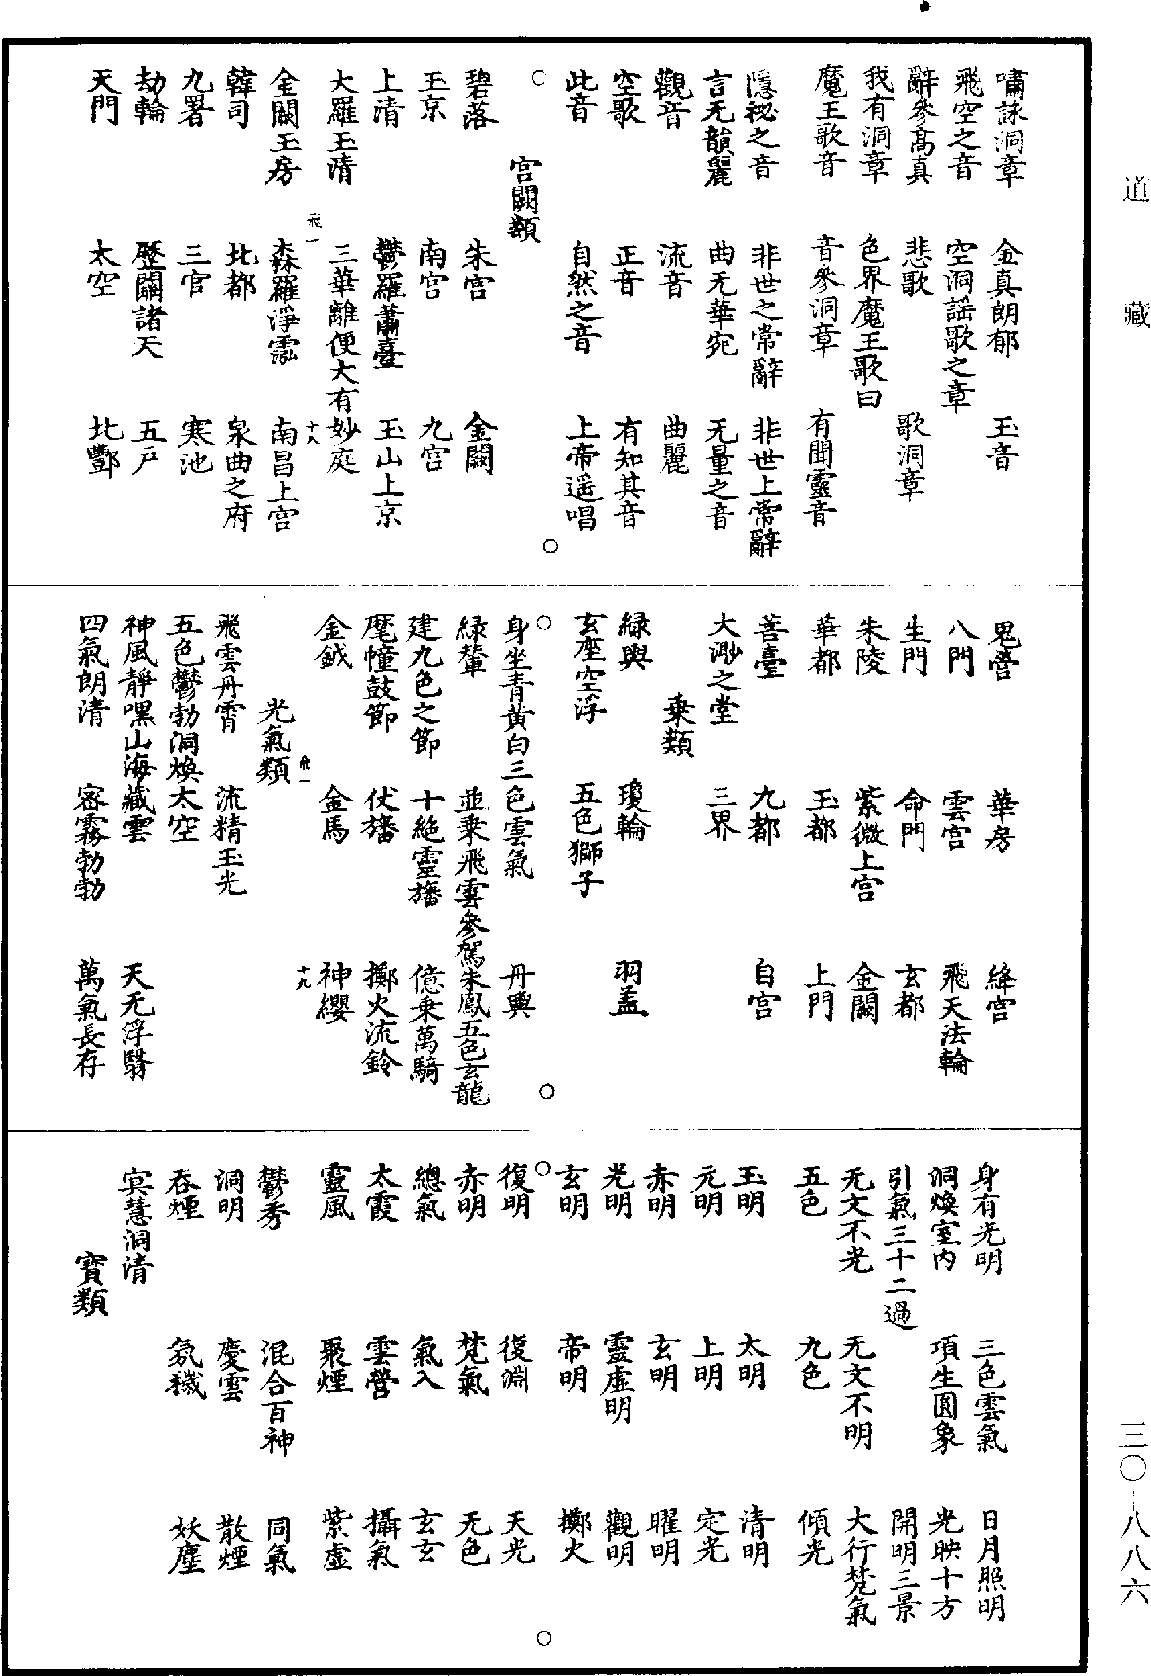 道藏
嘯詠洞章　金真朗郁　玉音
飛空之音　空洞謠歌之章
辭參高真　悲歌　歌洞章
我有洞章　色界魔王歌曰
魔王歌音　音參洞章　有聞靈音
隱祕之音　非世之常辭　非世上常辭
言无韻麗　曲无華宛　无量之音
觀音　流音　曲麗
空歌　正音　有知其音
此音　自然之音　上帝遥唱
宮闕類
碧落　朱宮　金闕
玉京　南宮　九宮
上清　鬱羅蕭臺　玉山上京
大羅玉清　三華離便大有妙庭
飛一　十八
金闕玉房　森羅淨泓　南昌上宮
韓司　北都　泉曲之府
九署　三官　寒池
劫輪　歷關諸天　五戶
天門　太空　北酆
鬼營　華房　絳宮
八門　雲宮　飛天法輪
生門　命門　玄都
朱陵　紫微上宮　金闕
華都　玉都　上門
菩臺　九都　自宮
大渺之堂　三界
乗類
緑輿　瓊輪　羽盖
玄座空浮　五色獅子
身坐青黃白三色雲氣　丹輿
緑輦　並乗飛雲參駕朱鳳五色玄龍
建九色之節　十絕靈旛　億乗萬騎
麾幢鼓節　伏旛　擲火流鈴
金鉞　金馬　神纓
飛一　十九
光氣類
飛雲丹霄　流精玉光
五色鬱勃洞煥太空
神風靜嘿山海藏雲　天无浮翳
四氣朗清　密霧勃勃　萬氣長存
身有光明　三色雲氣　日月照明
洞煥室内　項生圓象　光映十方
引氣三十二過　開明三景
无文不光　无文不明　大行梵氣
五色　九色　傾光
玉明　太明　清明
元明　上明　定光
赤明　玄明　曜明
光明　靈虛明　觀明
玄明　帝明　擲火
復明　復淵　天光
赤明　梵氣　无色
總氣　氣入　玄玄
太霞　雲營　攝氣
靈風　聚煙　紫虛
鬱秀　混合百神　同氣
洞明　慶雲　散煙
吞煙　氛穢　妖塵
寘慧洞清
寶類
三〇—八八六